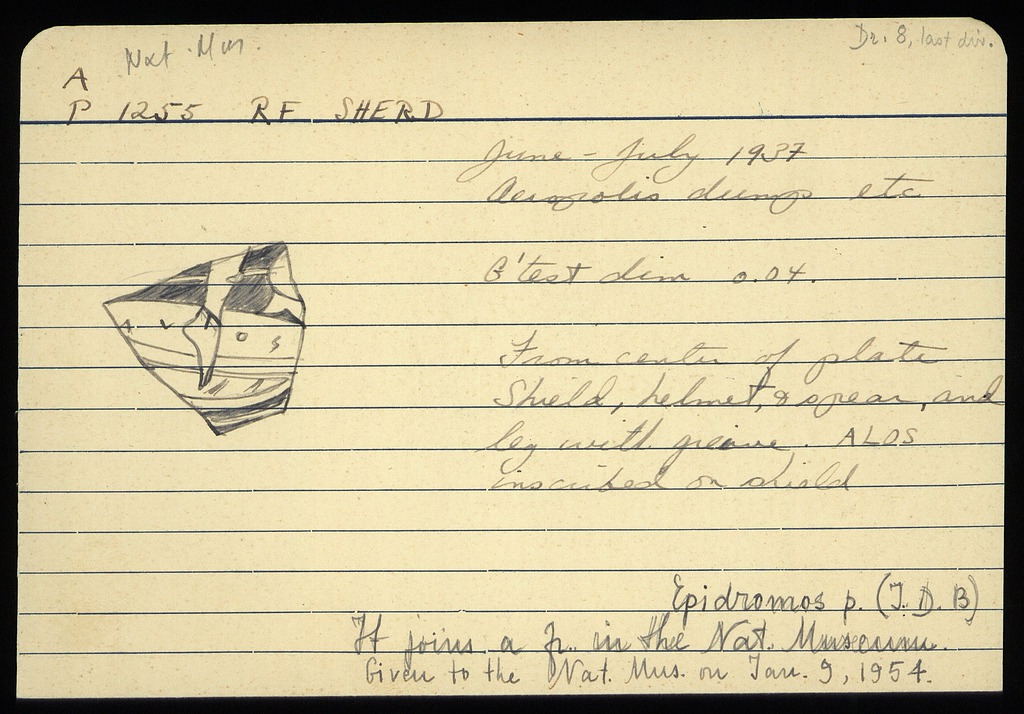 Nat. Mus.
Dr. 8, last div.
A
P 1255 RF SHERD
June - July 1937
Acropolis dump etc
G'test dim 0.04.
From center of plate
Shield, helmet, & spear, and
leg with greave. ALOS
inscribed on shield
A V O S
Epidromos p. (J. D. B)
It joins a fr. in the Nat. Museum.
Given to the Nat. Mus. on Jan. 9, 1954.